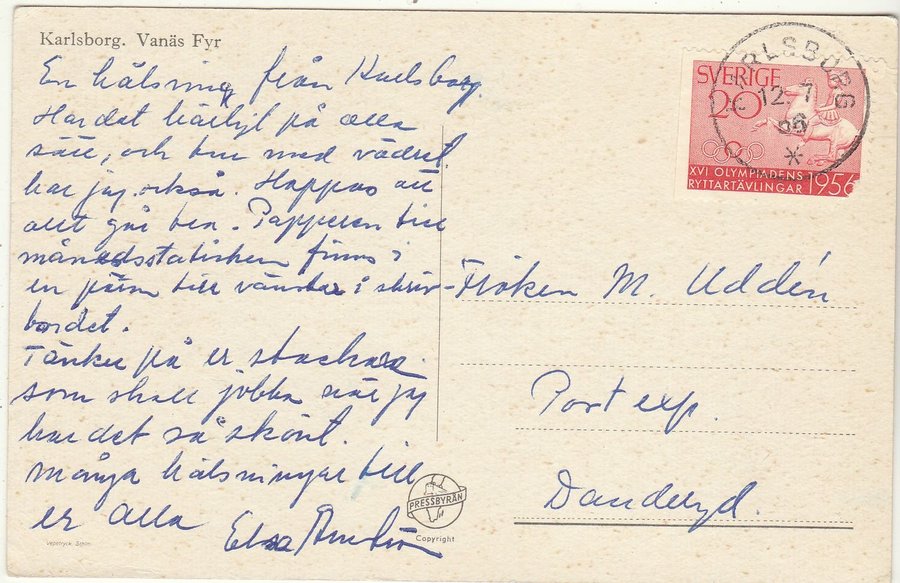 Karlsborg. Vanäs Fyr
En hälsning från Karlsborg.
Har det härligt på alla
sätt, och bra med vädret
har jag också. Hoppas att
allt går bra. Papperen till
månadsstatistiken finns i
en pärm till vänster i skriv-
bordet.
Tänker på er stackare
som skall jobba när jag
har det så skönt.
Många hälsningar till
er alla
Elsa
SVERIGE
20
XVI OLYMPIADENS
RYTTARTÄVLINGAR 1956
KARLSBORG
12.7
56
Fröken M. Uddén
Post exp.
Danderyd.
PRESSBYRÅN
Copyright
Vepetryck Sthlm